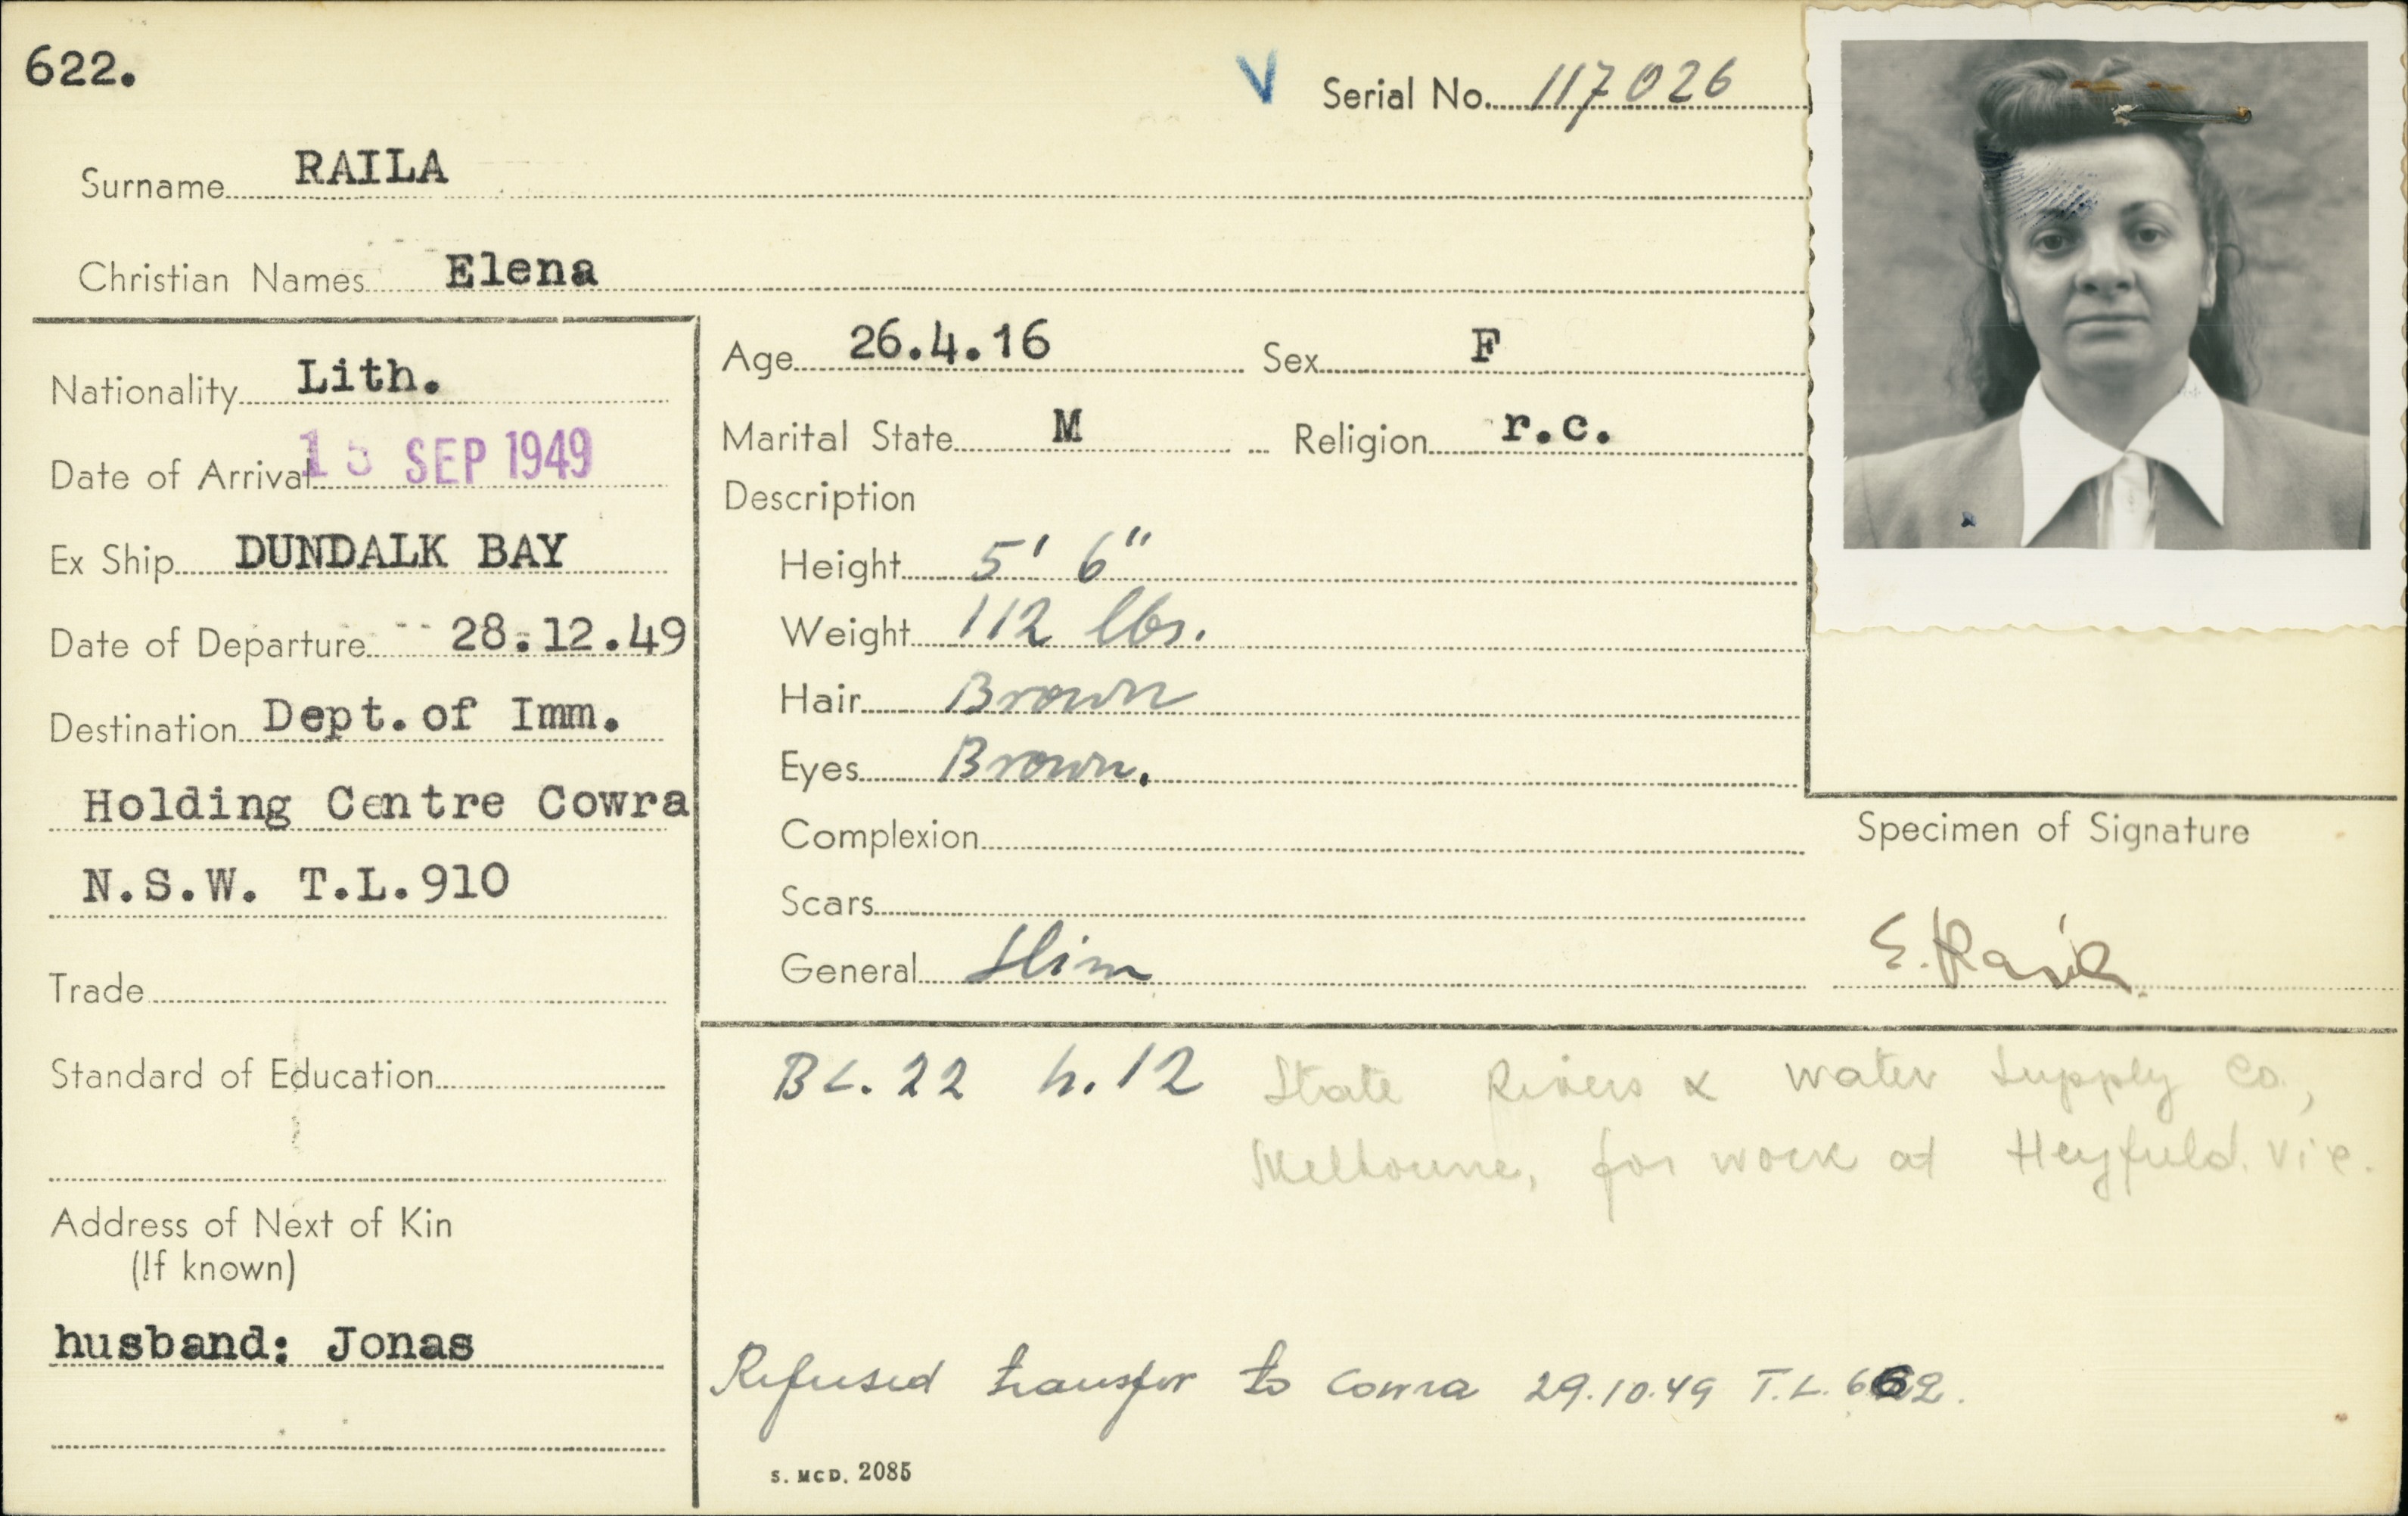 622.
V Serial No. 117026
Surname RAILA
Christian Names Elena
Nationality Lith.
Date of Arrival 15 SEP 1949
Ex Ship DUNDALK BAY
Date of Departure 28.12.49
Destination Dept. of Imm.
Holding Centre Cowra
N.S.W. T.L.910
Trade
Standard of Education
Address of Next of Kin
(If known)
husband: Jonas
Age 26.4.16 Sex F
Marital State M Religion r.c.
Description
Height 5' 6"
Weight 112 lbs.
Hair Brown
Eyes Brown.
Complexion
Scars
General Slim
Specimen of Signature
E. Raila
BL. 22 h. 12 State Rivers & Water Supply Co,
Melbourne, for work at Heyfield. Vic.
Refused transfer to Cowra 29.10.49 T.L. 662.
S. MCD. 2085